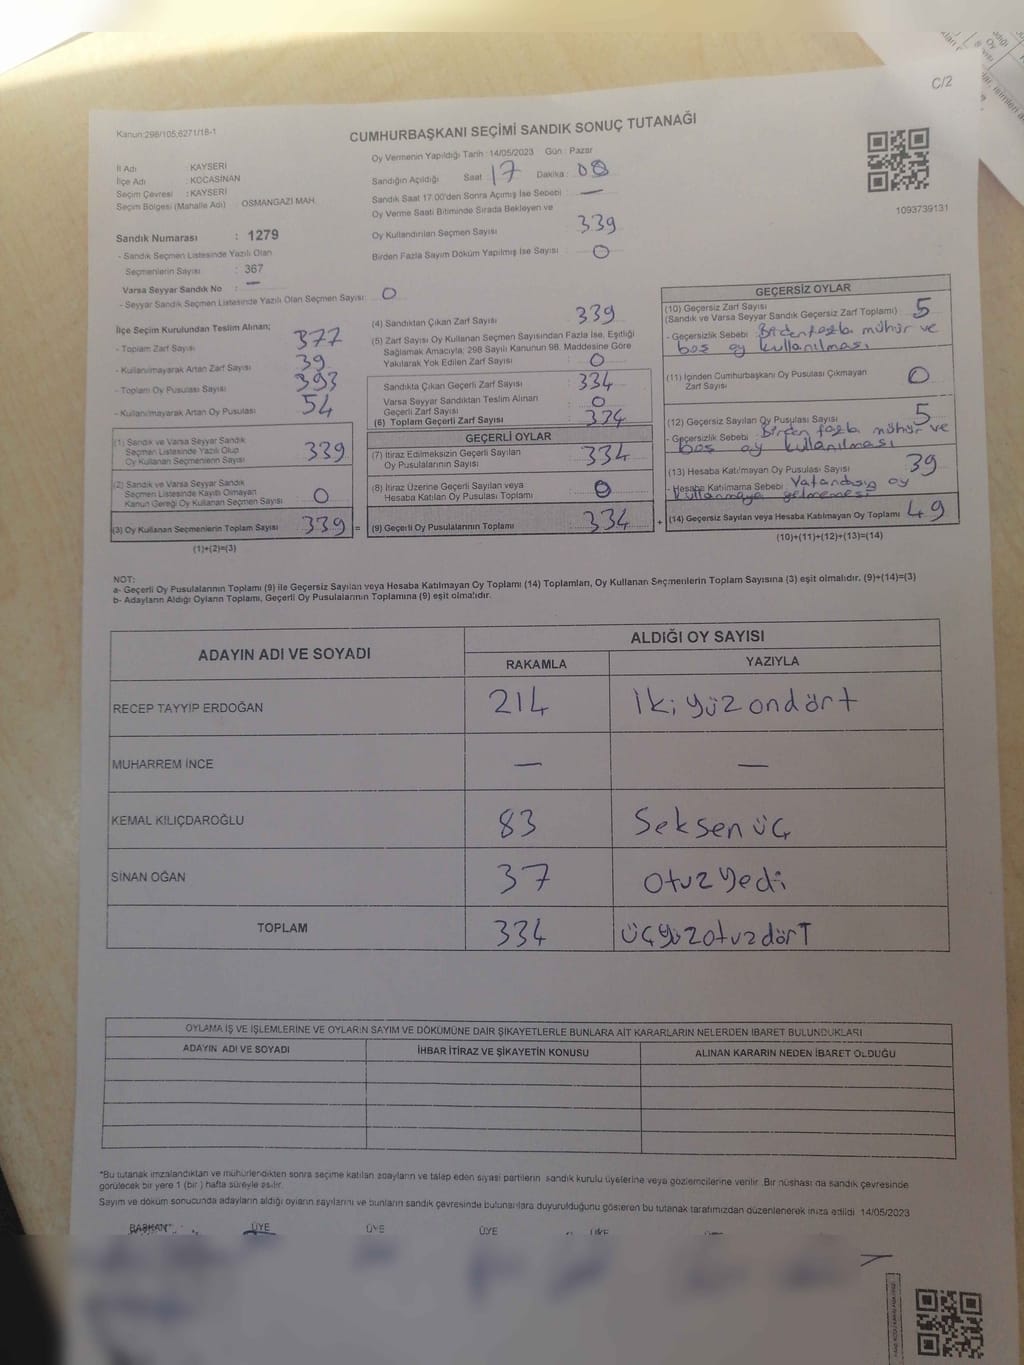 C/2
Kanun:298/105,6271/18-1
CUMHURBAŞKANI SEÇİMİ SANDIK SONUÇ TUTANAĞI
İl Adı : KAYSERİ
İlçe Adı : KOCASİNAN
Seçim Çevresi : KAYSERİ
Seçim Bölgesi (Mahalle Adı) OSMANGAZİ MAH.
Sandık Numarası : 1279
- Sandık Seçmen Listesinde Yazılı Olan
Seçmenlerin Sayısı : 367
Varsa Seyyar Sandık No : —
- Seyyar Sandık Seçmen Listesinde Yazılı Olan Seçmen Sayısı: 0
Oy Vermenin Yapıldığı Tarih : 14/05/2023 Gün : Pazar
Sandığın Açıldığı Saat : 17 Dakika : 08
Sandık Saat 17.00'den Sonra Açımış İse Sebebi : —
Oy Verme Saati Bitiminde Sırada Bekleyen ve
Oy Kullandırılan Seçmen Sayısı : 339
Birden Fazla Sayım Döküm Yapılmış İse Sayısı : 0
1093739131
İlçe Seçim Kurulundan Teslim Alınan;
- Toplam Zarf Sayısı : 377
- Kullanılmayarak Artan Zarf Sayısı : 39
- Toplam Oy Pusulası Sayısı : 393
- Kullanılmayarak Artan Oy Pusulası : 54
(1) Sandık ve Varsa Seyyar Sandık
Seçmen Listesinde Yazılı Olup
Oy Kullanan Seçmenlerin Sayısı : 339
(2) Sandık ve Varsa Seyyar Sandık
Seçmen Listesinde Kayıtlı Olmayan
Kanun Gereği Oy Kullanan Seçmen Sayısı : 0
(3) Oy Kullanan Seçmenlerin Toplam Sayısı : 339 =
(1)+(2)=(3)
(4) Sandıktan Çıkan Zarf Sayısı : 339
(5) Zarf Sayısı Oy Kullanan Seçmen Sayısından Fazla İse, Eşitliği
Sağlamak Amacıyla, 298 Sayılı Kanunun 98. Maddesine Göre
Yakılarak Yok Edilen Zarf Sayısı : 0
Sandıkta Çıkan Geçerli Zarf Sayısı : 334
Varsa Seyyar Sandıktan Teslim Alınan
Geçerli Zarf Sayısı : 0
(6) Toplam Geçerli Zarf Sayısı : 334
GEÇERLİ OYLAR
(7) İtiraz Edilmeksizin Geçerli Sayılan
Oy Pusulalarının Sayısı : 334
(8) İtiraz Üzerine Geçerli Sayılan veya
Hesaba Katılan Oy Pusulası Toplamı : 0
(9) Geçerli Oy Pusulalarının Toplamı : 334 +
GEÇERSİZ OYLAR
(10) Geçersiz Zarf Sayısı
(Sandık ve Varsa Seyyar Sandık Geçersiz Zarf Toplamı) : 5
- Geçersizlik Sebebi : Birden fazla mühür ve
boş oy kullanılması
(11) İçinden Cumhurbaşkanı Oy Pusulası Çıkmayan
Zarf Sayısı : 0
(12) Geçersiz Sayılan Oy Pusulası Sayısı : 5
- Geçersizlik Sebebi : Birden fazla mühür ve
boş oy kullanılması
(13) Hesaba Katılmayan Oy Pusulası Sayısı : 39
- Hesaba Katılmama Sebebi : Vatandaşın oy
kullanmaya gelmemesi
(14) Geçersiz Sayılan veya Hesaba Katılmayan Oy Toplamı : 49
(10)+(11)+(12)+(13)=(14)
NOT:
a- Geçerli Oy Pusulalarının Toplamı (9) ile Geçersiz Sayılan veya Hesaba Katılmayan Oy Toplamı (14) Toplamları, Oy Kullanan Seçmenlerin Toplam Sayısına (3) eşit olmalıdır. (9)+(14)=(3)
b- Adayların Aldığı Oyların Toplamı, Geçerli Oy Pusulalarının Toplamına (9) eşit olmalıdır.
ADAYIN ADI VE SOYADI ALDIĞI OY SAYISI
RAKAMLA YAZIYLA
RECEP TAYYİP ERDOĞAN 214 İkiyüzondört
MUHARREM İNCE — —
KEMAL KILIÇDAROĞLU 83 Seksenüç
SİNAN OĞAN 37 otuzyedi
TOPLAM 334 üçyüzotuzdört
OYLAMA İŞ VE İŞLEMLERİNE VE OYLARIN SAYIM VE DÖKÜMÜNE DAİR ŞİKAYETLERLE BUNLARA AİT KARARLARIN NELERDEN İBARET BULUNDUKLARI
ADAYIN ADI VE SOYADI İHBAR İTİRAZ VE ŞİKAYETİN KONUSU ALINAN KARARIN NEDEN İBARET OLDUĞU
*Bu tutanak imzalandıktan ve mühürlendikten sonra seçime katılan adayların ve talep eden siyasi partilerin sandık kurulu üyelerine veya gözlemcilerine verilir. Bir nüshası da sandık çevresinde
görülecek bir yere 1 (bir ) hafta süreyle asılır.
Sayım ve döküm sonucunda adayların aldığı oyların sayılarını ve bunların sandık çevresinde bulunanlara duyurulduğunu gösteren bu tutanak tarafımızdan düzenlenerek imza edildi 14/05/2023
BAŞKAN ÜYE ÜYE ÜYE ÜYE